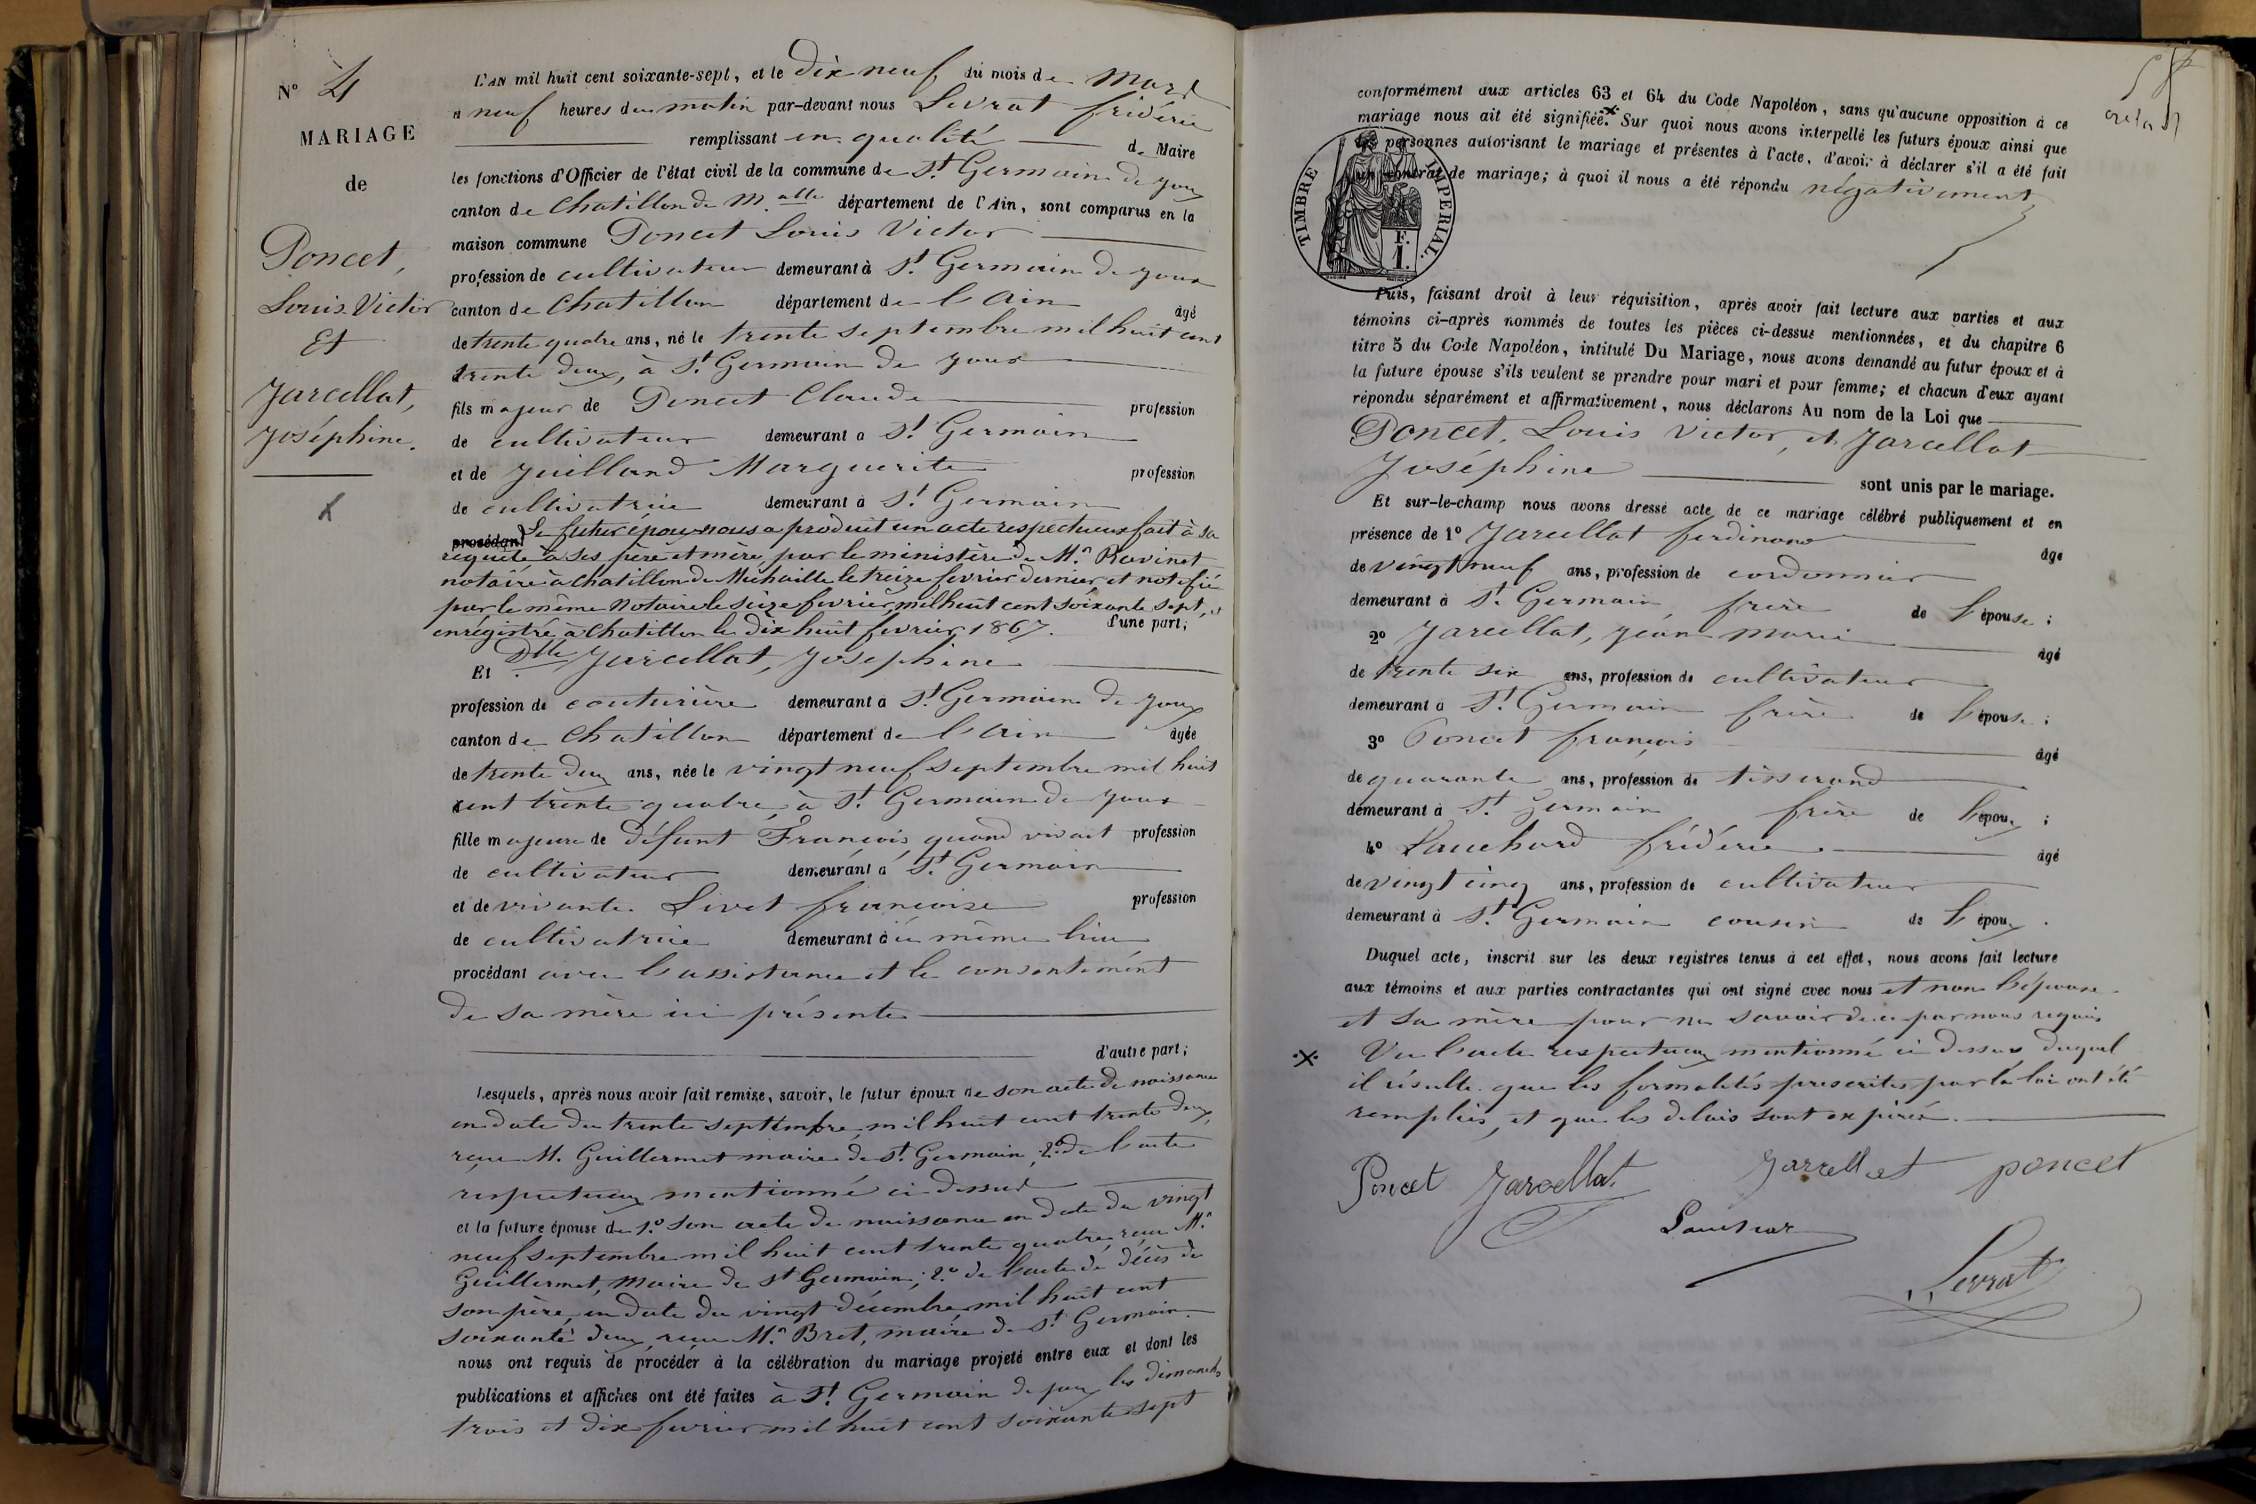 N° 4
MARIAGE
de
Poncet,
Louis Victor
Et
Jarcellat,
Joséphine.
L'AN mil huit cent soixante-sept, et le dix neuf du mois de Mars
a neuf heures du matin par-devant nous Levrat frédéric
remplissant en qualité de Maire
les fonctions d'Officier de l'état civil de la commune de St Germain de Joux
canton de Chatillon de M.alle département de l'Ain, sont comparus en la
maison commune Poncet Louis Victor
profession de cultivateur demeurant à St Germain de Joux
canton de Chatillon département de l'Ain âgé
de trente quatre ans, né le trente septembre mil huit cent
trente deux, à St Germain de Joux
fils majeur de Poncet Claude profession
de cultivateur demeurant a St Germain
et de Juilland Marguerite profession
de cultivatrice demeurant à St Germain
procédant Le futur époux nous a produit un acte respectueux fait à sa
requête à ses père et mère, par le ministère de Me Ravinet
notaire à Chatillon de Michaille le treize fevrier dernier et notifié
par le même Notaire le seize fevrier mil huit cent soixante sept, et
enrégistré à Chatillon le dix huit fevrier 1867. d'une part;
Et Dlle Jarcellat, Josephine
profession de couturière demeurant a St Germain de Joux
canton de Chatillon département de l'Ain âgée
de trente deux ans, née le vingt neuf septembre mil huit
cent trente quatre, à St Germain de Joux
fille majeure de défunt François, quand vivait profession
de cultivateur demeurant à St Germain
et de vivante Livet françoise profession
de cultivatrice demeurant à ce même lieu
procédant avec l'assistance et le consentément
de sa mère ici présente
d'autre part;
Lesquels, après nous avoir fait remise, savoir, le futur époux de son acte de naissance
en date du trente septembre mil huit cent trente deux,
reçu M. Guillermet maire de St Germain, 2° de l'acte
respectueux mentionné ci dessus
et la future épouse de 1° son acte de naissance en date du vingt
neuf septembre mil huit cent trente quatre, reçu Mr
Guillermet, Maire de St Germain; 2° de l'acte de décès de
son père, en date du vingt décembre mil huit cent
soixante deux, reçu Mr Bret, maire de St Germain
nous ont requis de procéder à la célébration du mariage projeté entre eux et dont les
publications et affiches ont été faites à St Germain de Joux les dimanches
trois et dix fevrier mil huit cent soixante sept
conformément aux articles 63 et 64 du Code Napoléon, sans qu'aucune opposition à ce
mariage nous ait été signifiée. x Sur quoi nous avons interpellé les futurs époux ainsi que
les personnes autorisant le mariage et présentes à l'acte, d'avoir à déclarer s'il a été fait
un contrat de mariage; à quoi il nous a été répondu négativement
TIMBRE IMPERIAL.
F.
1.
Puis, faisant droit à leur réquisition, après avoir fait lecture aux parties et aux
témoins ci-après nommés de toutes les pièces ci-dessus mentionnées, et du chapitre 6
titre 5 du Code Napoléon, intitulé Du Mariage, nous avons demandé au futur époux et à
la future épouse s'ils veulent se prendre pour mari et pour femme; et chacun d'eux ayant
répondu séparément et affirmativement, nous déclarons Au nom de la Loi que
Poncet, Louis Victor, et Jarcellat
Joséphine sont unis par le mariage.
Et sur-le-champ nous avons dressé acte de ce mariage célébré publiquement et en
présence de 1° Jarcellat ferdinand âgé
de vingt neuf ans, profession de cordonnier
demeurant à St Germain, frère de l'épouse;
2° Jarcellat, Jean Marie âgé
de trente six ans, profession de cultivateur
demeurant à St Germain frère de l'épouse;
3° Poncet françois âgé
de quarante ans, profession de tisserand
demeurant à St Germain frère de l'époux;
4° Lauchard frédéric âgé
de vingt cinq ans, profession de cultivateur
demeurant à St Germain cousin de l'époux.
Duquel acte, inscrit sur les deux registres tenus à cet effet, nous avons fait lecture
aux témoins et aux parties contractantes qui ont signé avec nous et non l'épouse
et sa mère pour ne savoir de ce par nous requis
x Vu l'acte respectueux mentionné ci dessus duquel
il résulte que les formalités prescrites par la loi ont été
remplies, et que les délais sont expirés.
Poncet Jarcellat Jarcellat poncet
Lauchard
Levrat